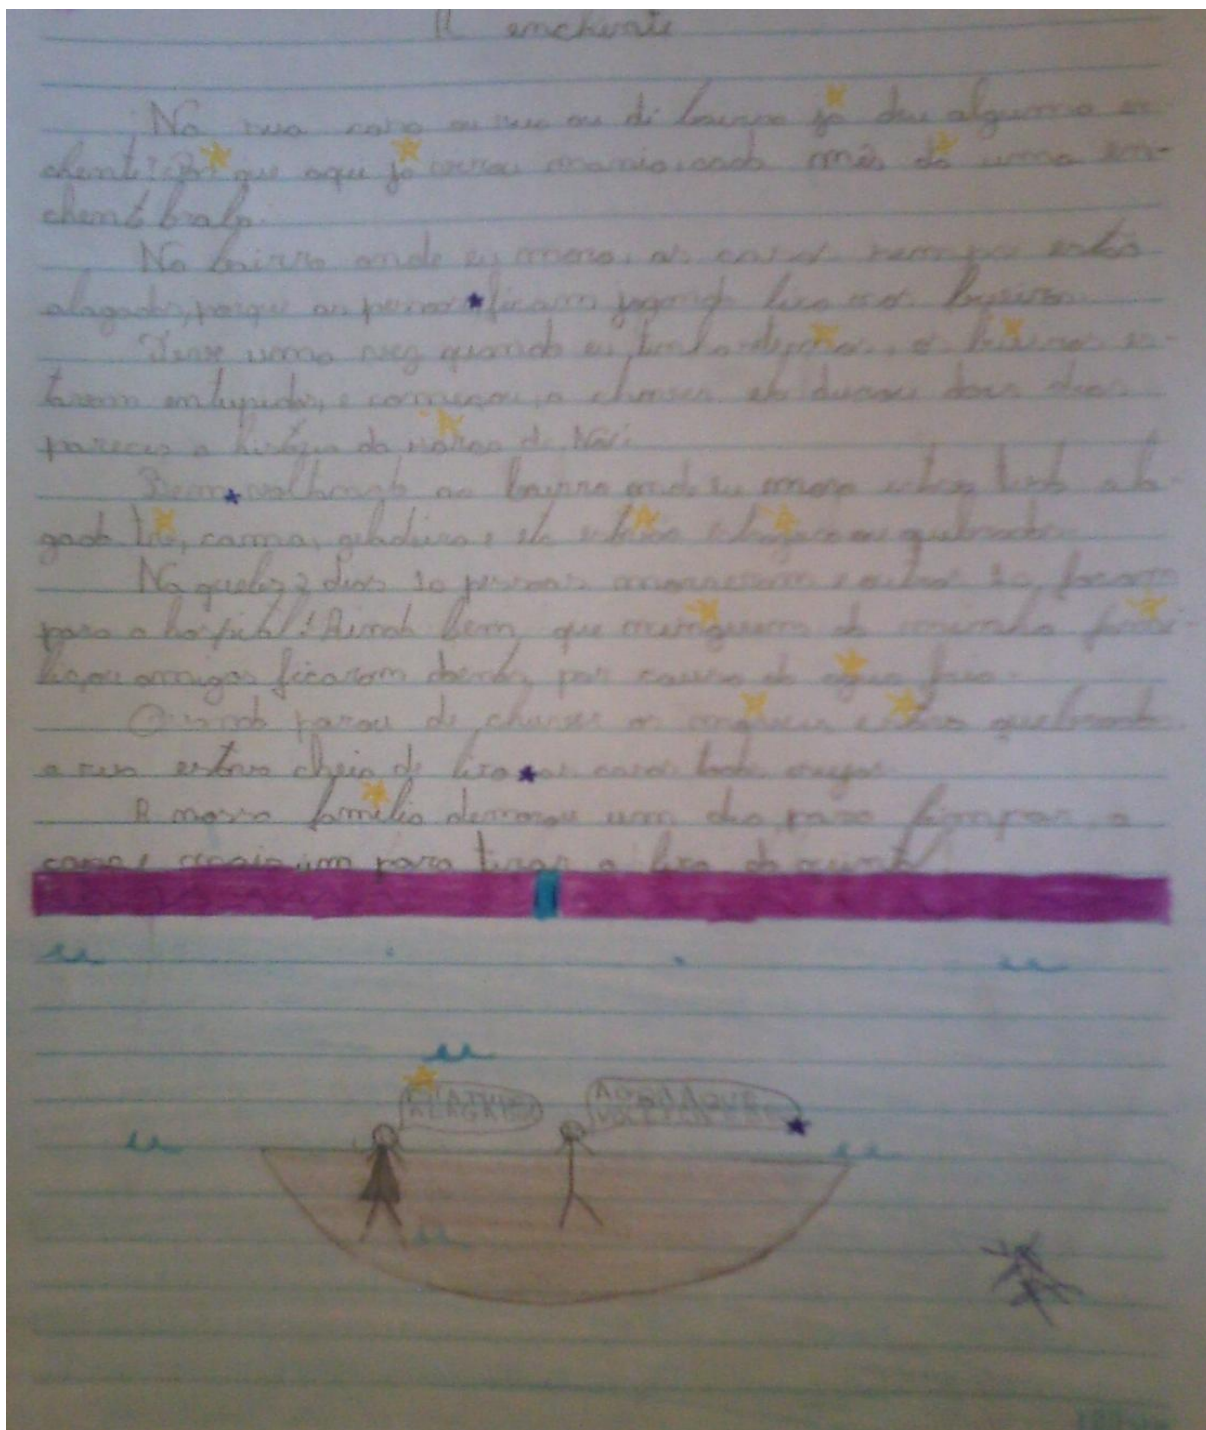 A enchente
Na sua casa ou rua ou di bairro já deu alguma en
chente? Por que aqui já virou mania, cada mês dá uma en-
chente braba.
No bairro onde eu moro, as casas sempre estão
alagados, porque as pessoas ficam jogando lixo nos bueiros.
Teve uma vez quando eu tinha anos, o bueiros es-
tavam entupidos, e começou a chover ele durou dois dias
pareceu a história da de Noé.
Bem, voltando ao bairro onde eu moro estava tudo ala-
gado cama, geladeira e ou quebrados.
Na queles 2 dias 10 pessoas morreram e outros 20 foram
para o hospital! Ainda bem que ninguem da minha famí-
lia, ou amigos ficaram doentes por causa da água fria.
Quando parou de chover os estava quebrado
a rua estava cheia de lixo as casas toda sujas.
A nossa família demorou um dia para limpar a
casa e mais um para tirar o lixo da frente